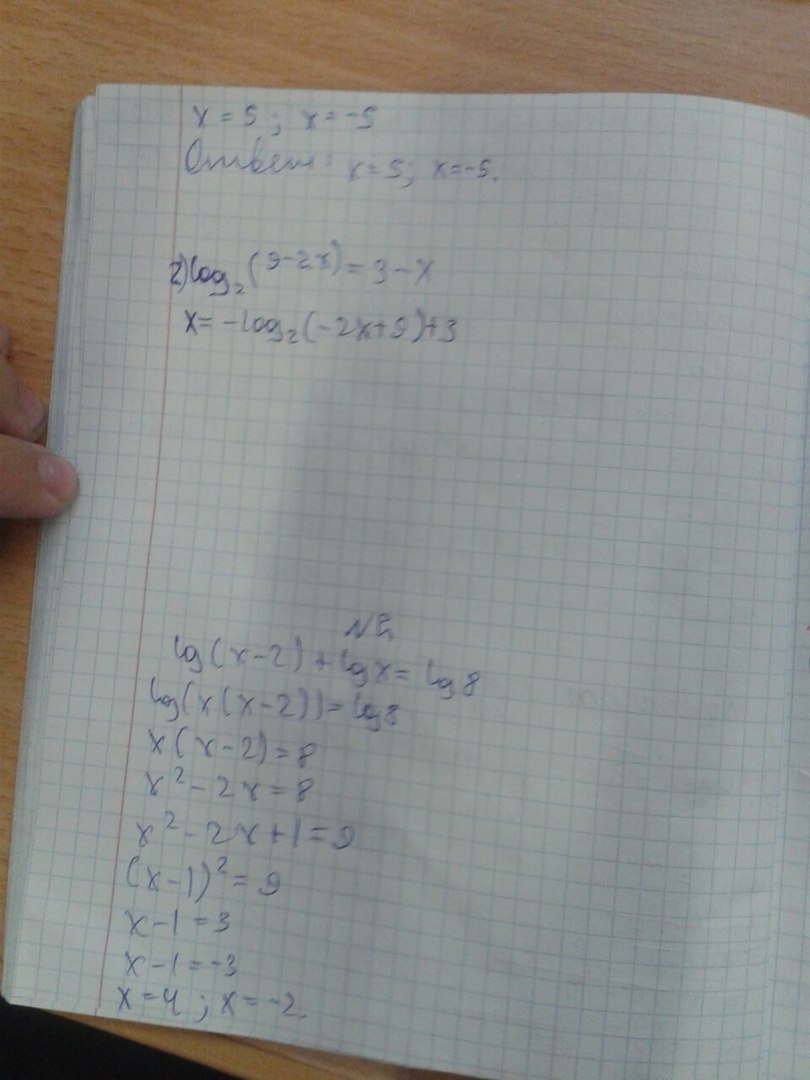 x = 5 ; x = -5
Ответ: x=5; x=-5.
2) log₂(9-2x) = 3-x
x = -log₂(-2x+9)+3
№2.
lg(x-2) + lg x = lg 8
lg(x(x-2)) = lg 8
x(x-2) = 8
x² - 2x = 8
x² - 2x + 1 = 9
(x-1)² = 9
x-1 = 3
x-1 = -3
x = 4 ; x = -2.